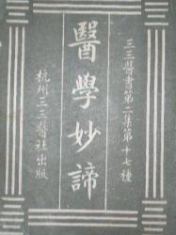 三三醫書第二集第十七種
醫學妙諦
杭州三三醫社出版